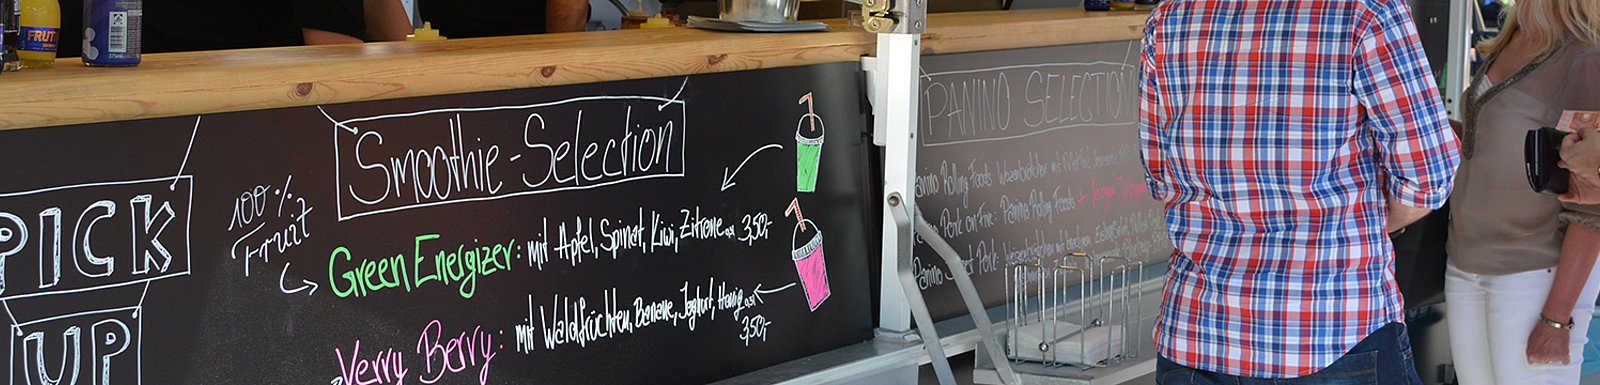 FRUT
PICK
UP
100% Fruit
Smoothie-Selection
Green Energizer: mit Apfel, Spinat, Kiwi, Zitrone 0,3l 3,50,-
Verry Berry: mit Waldfrüchten, Banane, Joghurt, Honig 0,3l
3,50,-
PANINO SELECTION
Panino Rolling Foods: Weizenbrötchen mit Pulled
Panino Pork on Fire: Panino Rolling Foods +
Panino Sweet Pork: